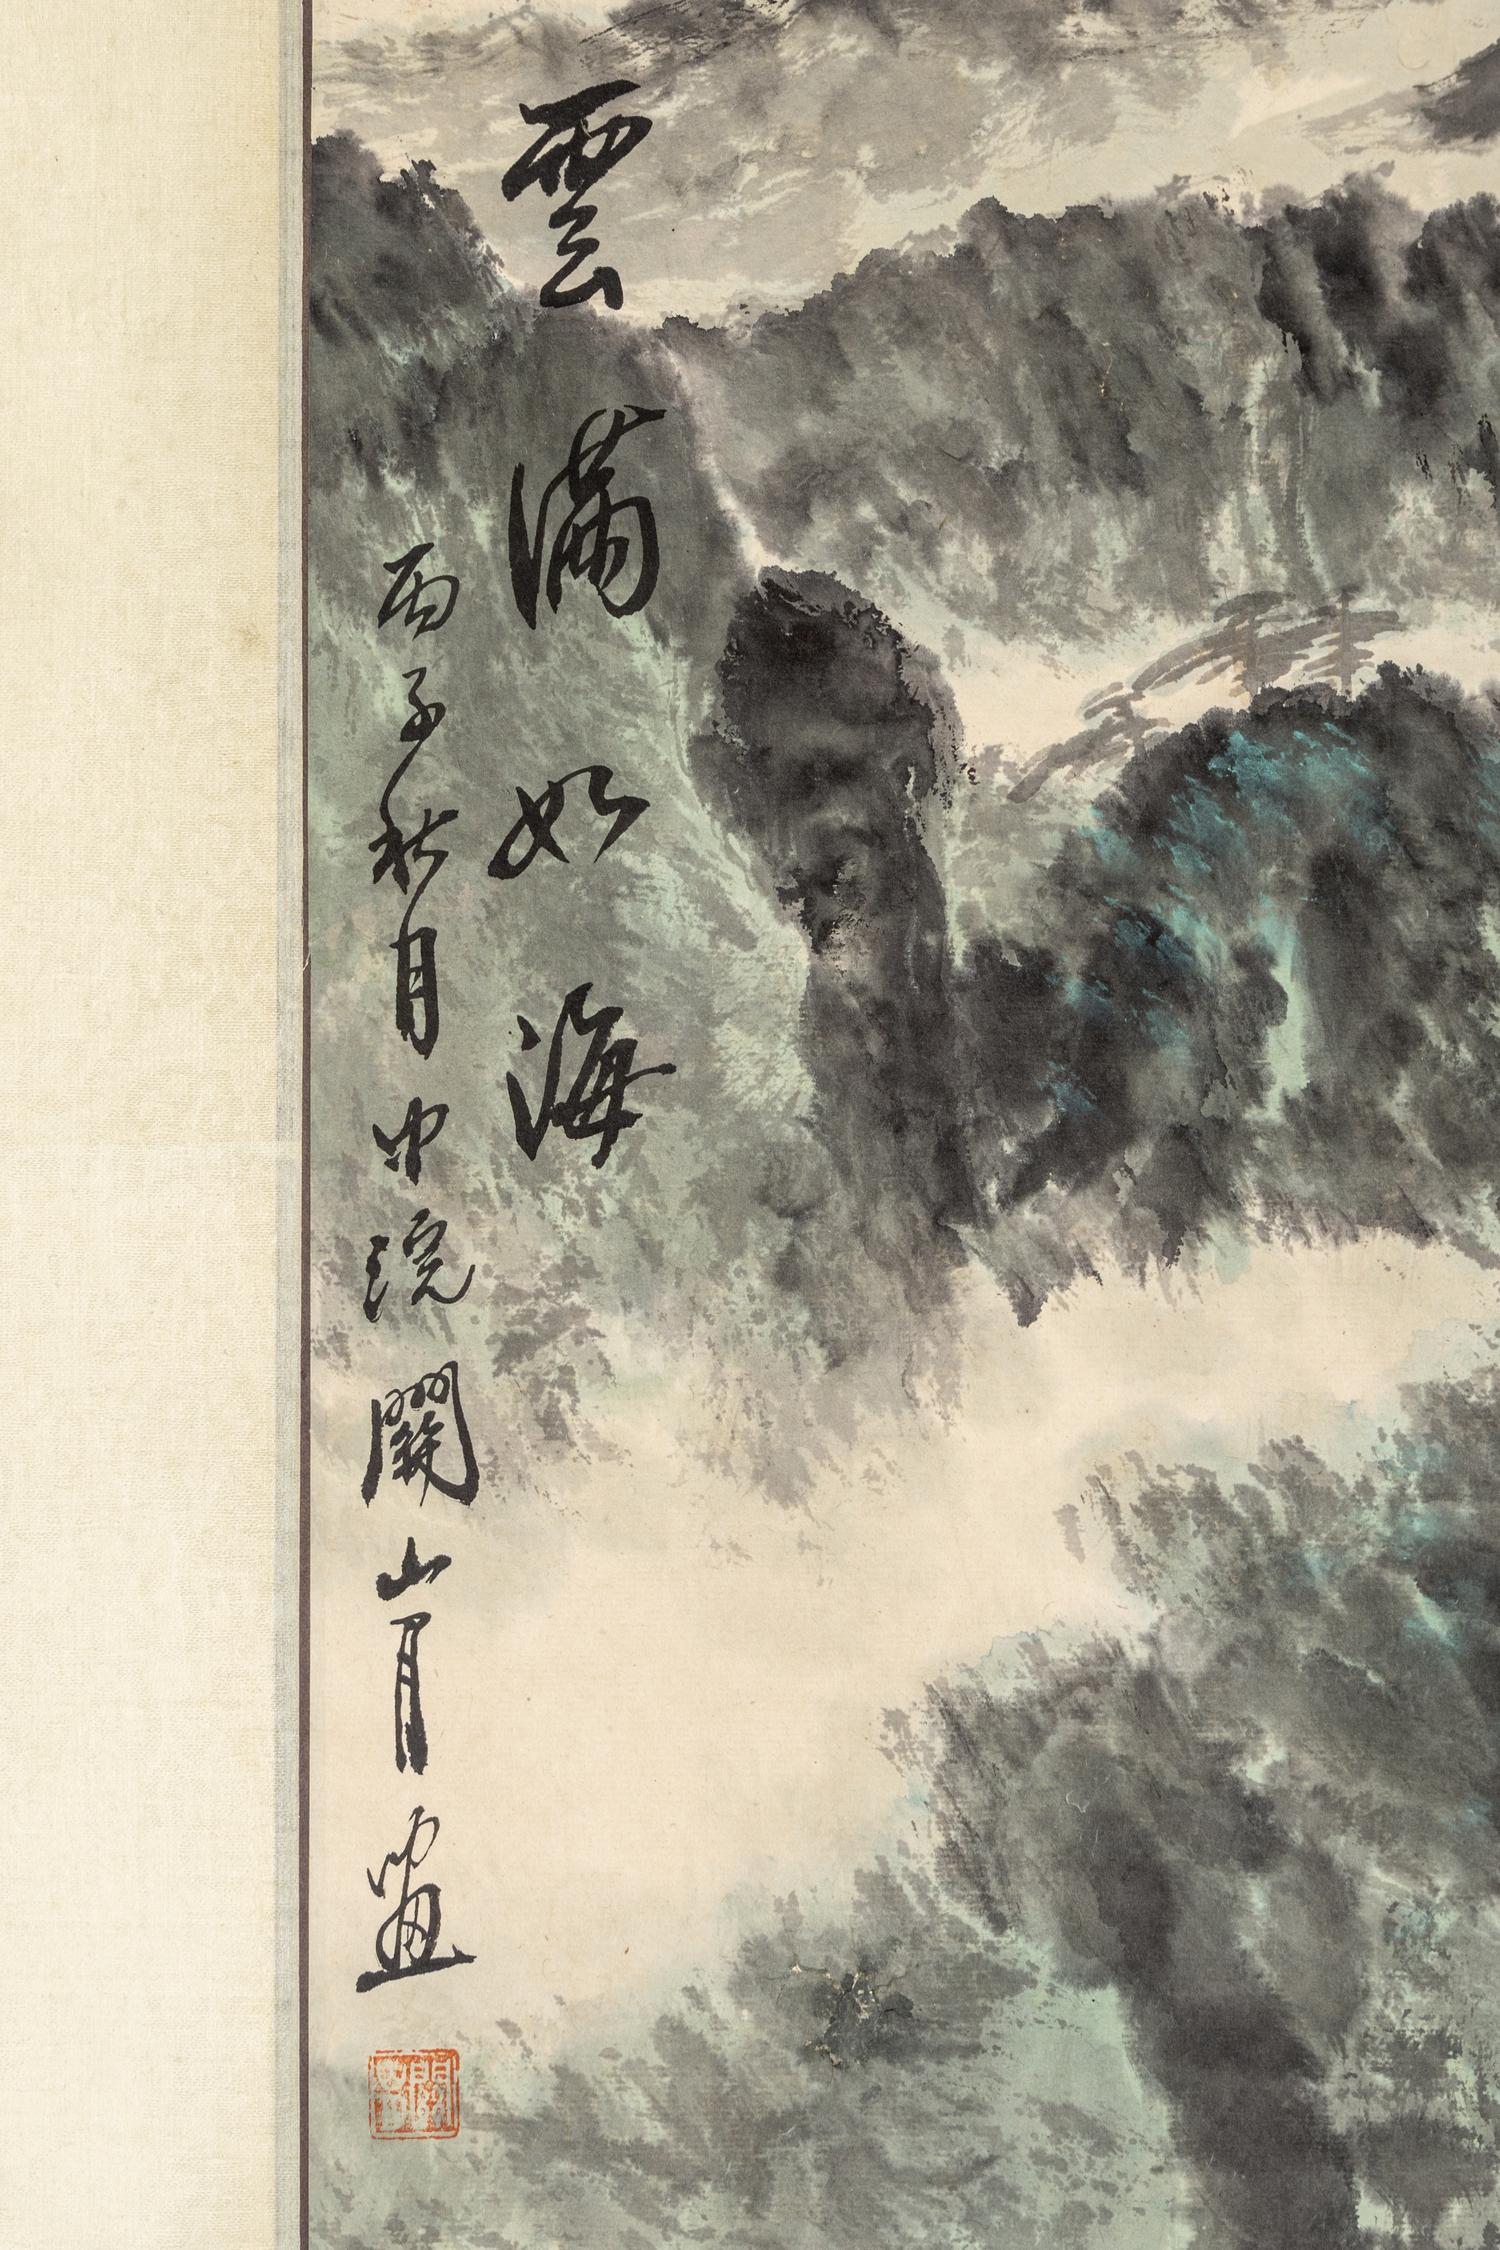 雲滿如海
丙子秋月中浣關山月畫